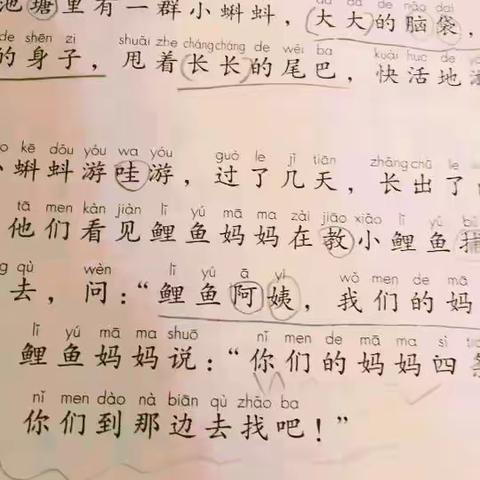 塘里有一群小蝌蚪，大大的脑袋，
de shēn zi shuǎi zhe chángcháng de wěi ba kuài huó de
的身子，甩着长长的尾巴，快活地
kē dǒu yóu wa yóu guò le jǐ tiān zhǎng chū le
蝌蚪游哇游，过了几天，长出了
tā men kàn jiàn lǐ yú mā ma zài jiāo xiǎo lǐ yú bǔ
他们看见鲤鱼妈妈在教小鲤鱼捕
qù wèn lǐ yú ā yí wǒ men de mā
去，问：“鲤鱼阿姨，我们的妈
lǐ yú mā ma shuō nǐ men de mā ma sì
鲤鱼妈妈说：“你们的妈妈四
nǐ men dào nà biān qù zhǎo ba
你们到那边去找吧！”